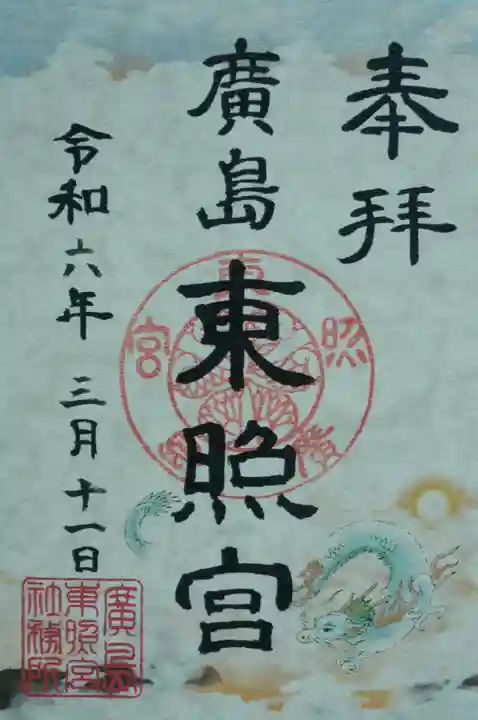 奉拝
廣島東照宮
令和六年三月十一日
東照宮
廣島
東照宮
社務所